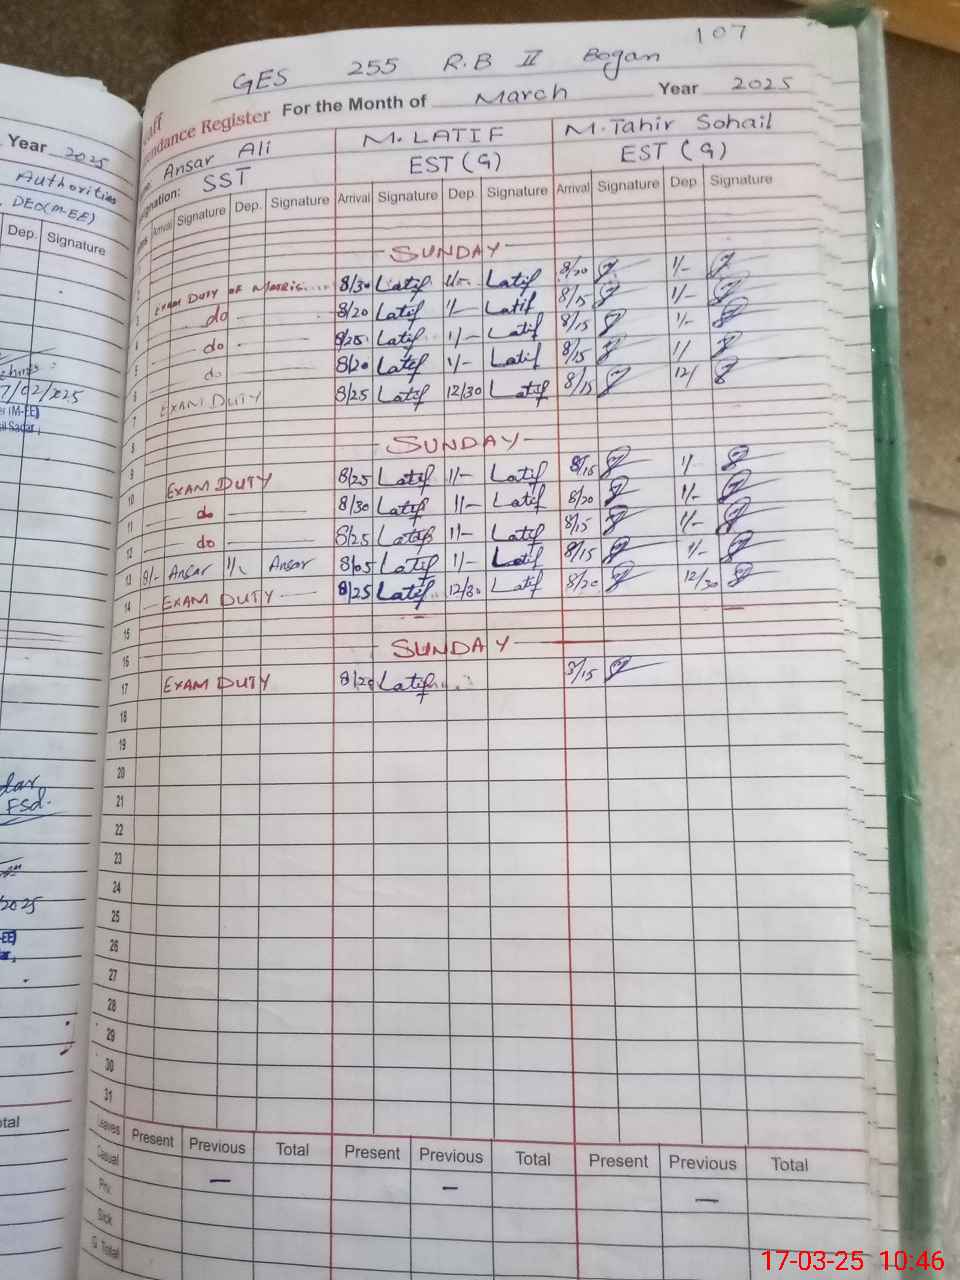 107
GES 255 R.B II Bogan
Attendance Register For the Month of March Year 2025
Ansar Ali M. LATIF M. Tahir Sohail
SST EST (G) EST (G)
Arrival Signature Dep. Signature Arrival Signature Dep. Signature Arrival Signature Dep. Signature
SUNDAY
EXAM DUTY OF 8/30 Latif 1/- Latif 8/20 1/-
do 8/20 Latif 1/- Latif 8/15 1/-
do 8/25 Latif 1/- Latif 8/15 1/-
do 8/20 Latif 1/- Latif 8/15 1/
EXAM DUTY 8/25 Latif 12/30 Latif 8/15 12/
7
8 SUNDAY
9 EXAM DUTY 8/25 Latif 1/- Latif 8/15 1/
10 do 8/30 Latif 1/- Latif 8/20 1/-
11 do 8/25 Latif 1/- Latif 8/15 1/-
12
13 8/- Ansar 1/- Ansar 8/05 Latif 1/- Latif 8/15 1/-
14 EXAM DUTY 8/25 Latif 12/30 Latif 8/20 12/30
15
16 SUNDAY
17 EXAM DUTY 8/20 Latif 8/15
18
19
20
21
22
23
24
25
26
27
28
29
30
31
Leaves Present Previous Total Present Previous Total Present Previous Total
Casual — — —
Priv.
Sick
G. Total
Year 2025
Authorities
DEO(M-EE)
Dep. Signature
FSd.
2025
17-03-25 10:46